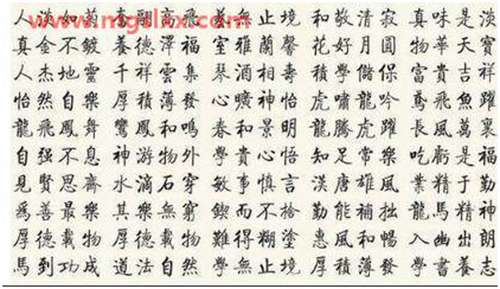 www.mgslax.com
人淡如菊 高飛 無止境 和敬清寂 真味是淡
真金不鍍 德澤福 室雅蘭馨 花好月圓 物華天寶
人杰地靈 千祥雲集 琴酒相壽 積學儲保 富貴吉祥
怡然自樂 厚積薄發 心曠神怡 虎嘯龍吟 鳶飛魚躍
龍飛鳳舞 鸞鳳和鳴 春和景明 龍騰虎躍 長風萬裏
自强不息 神游物外 學貴心悟 知足常樂 吃虧是福
見賢思齋 水滴石穿 敏事慎言 漢唐雄風 業精于勤
爲善最樂 其樂無窮 鍥而不捨 勤能補拙 龍馬精神
厚德載物 厚德載物 難得糊塗 惠風和暢 入幽出朗
馬到功成 道法自然 學無止境 厚積薄發 學書養志